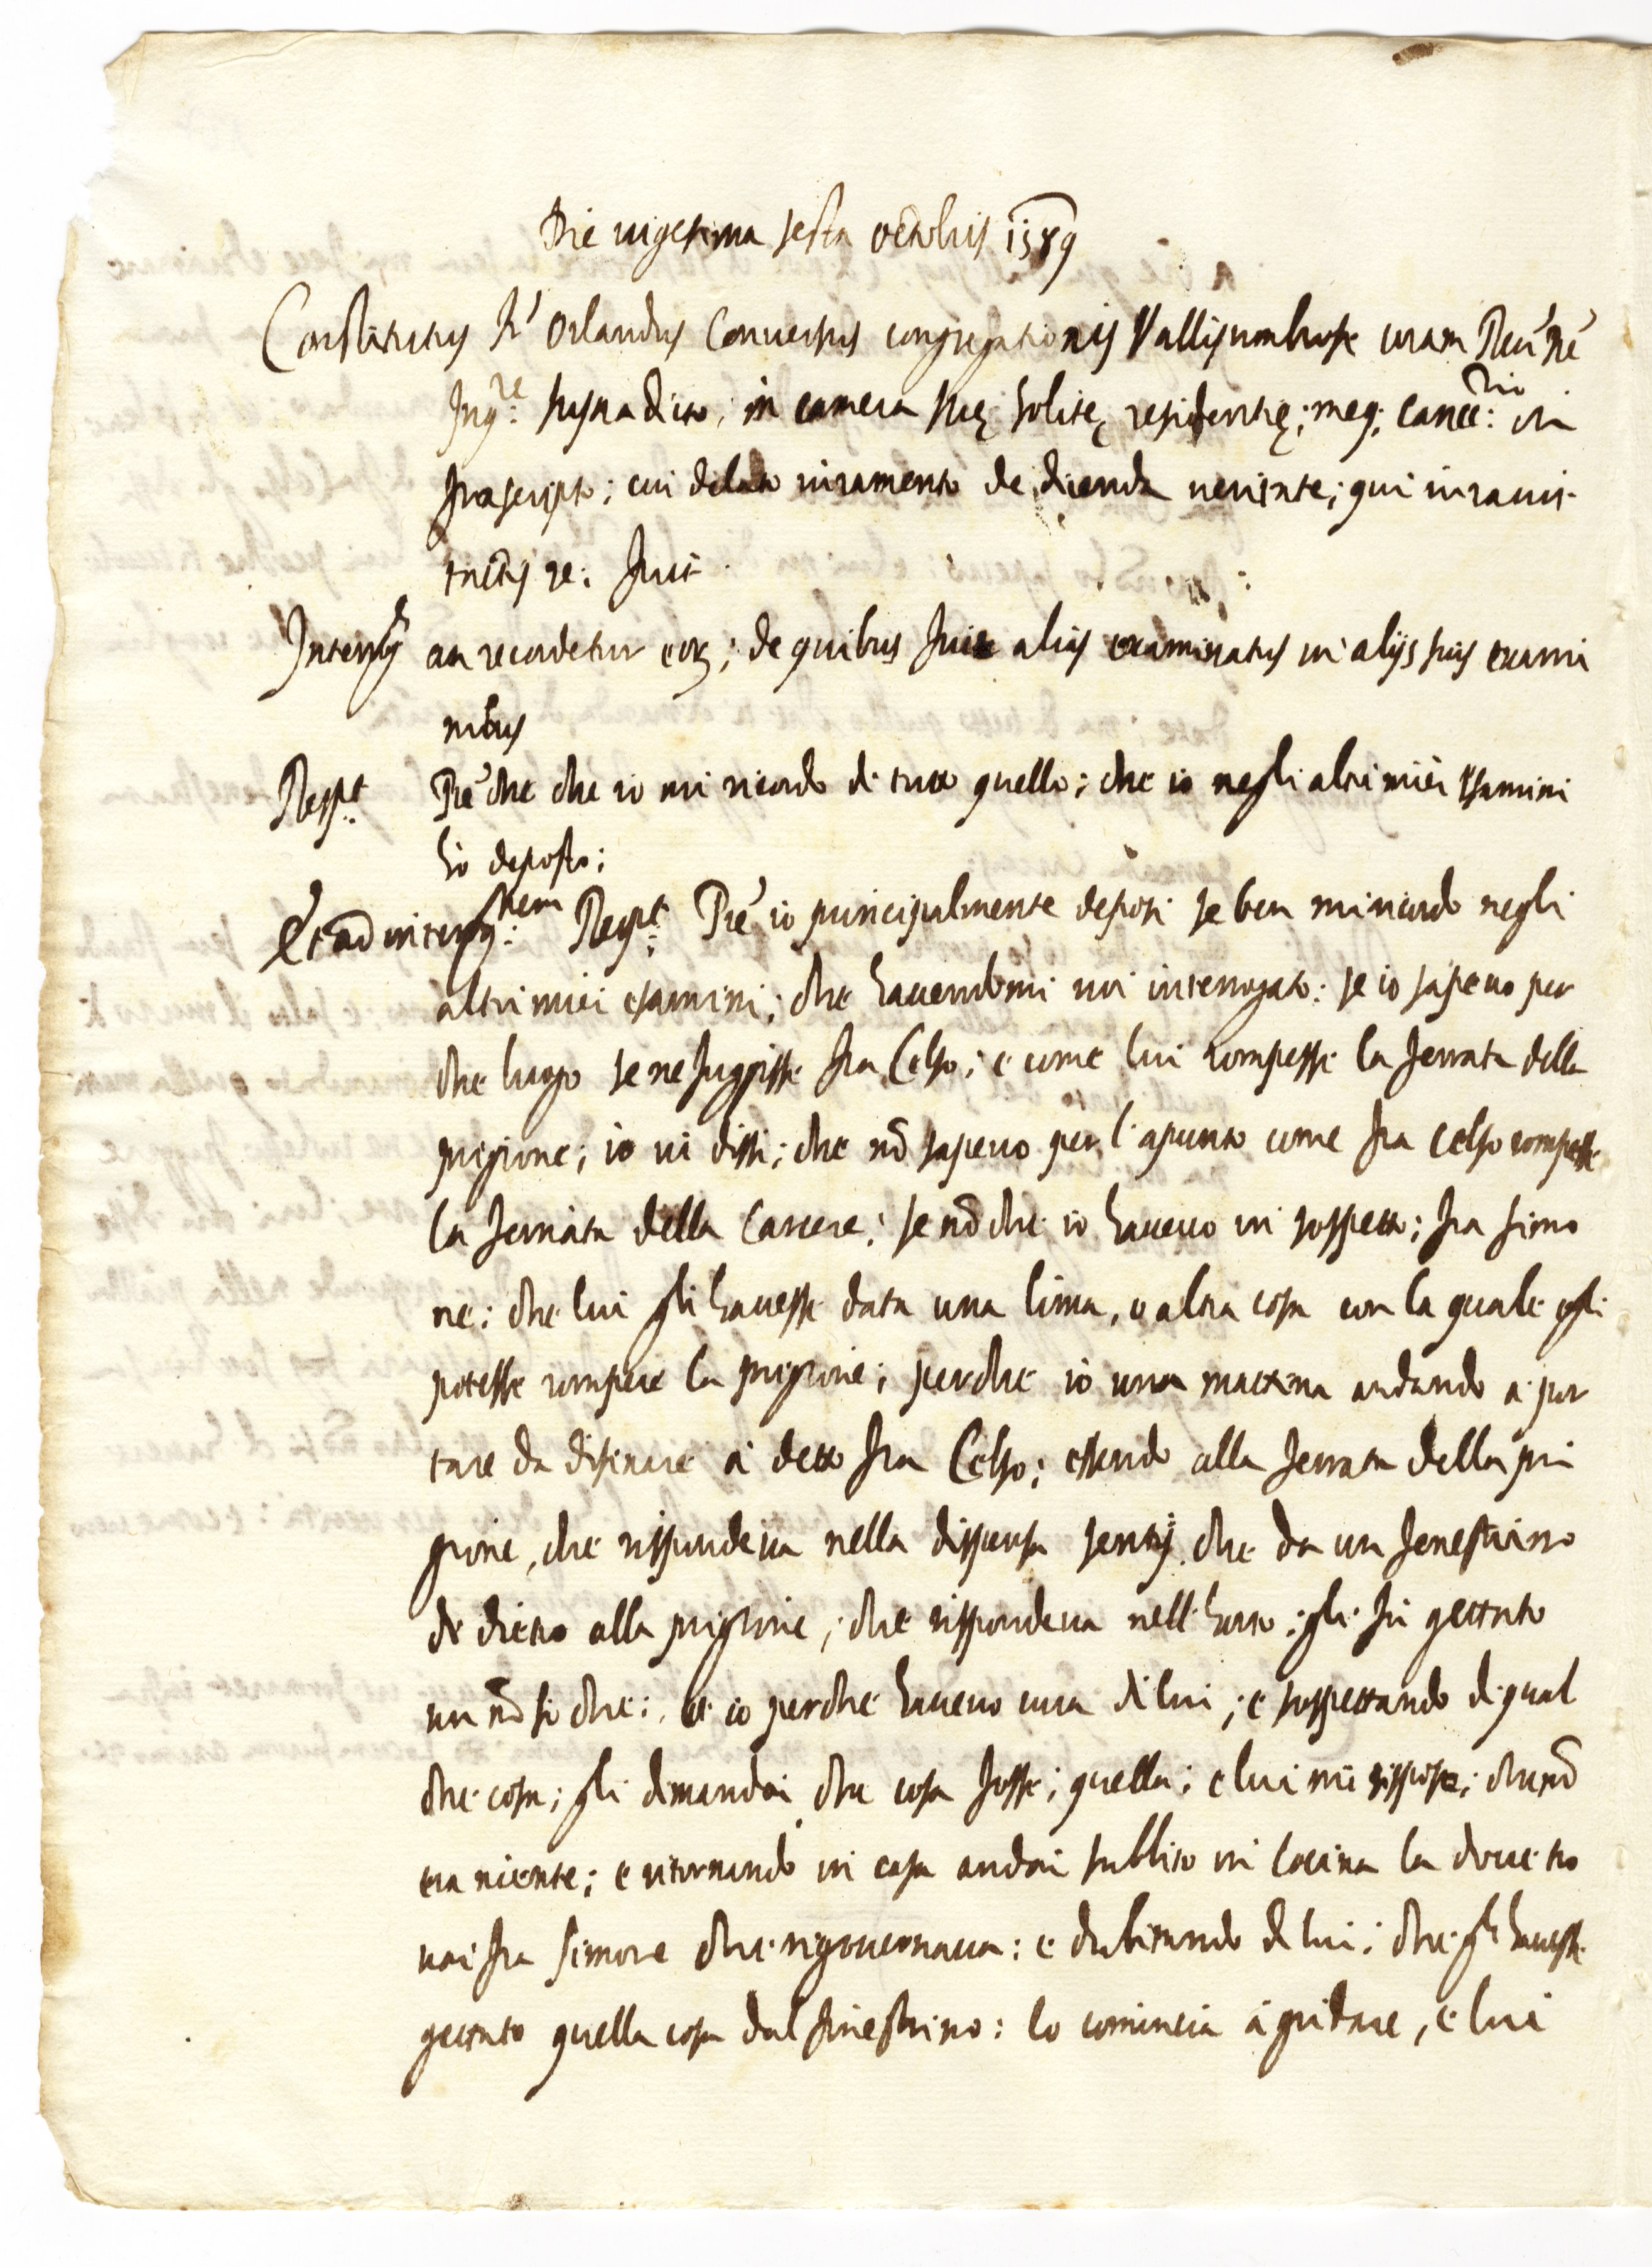 Die vigesima sesta octobris 1589
Constitutus fr Orlandus Conversus congregationis Vallisumbrose coram Reu Pre
Inqre: supradicto; in camera sue solite residentie; meq; Cancerio: in
frascripto; cui delato iuramento de dicenda veritate; qui iuravit
tactis re: fuit
Interrogs an recordetur eorum; de quibus fuit alias examinatus in alijs suis exami
nibus
Respt: Pre che che io mi ricordo di tutto quello; che io negli altri miei esamini
hò deposto:
Et ad interrogtionem: Respt: Pre io principalmente deposi se ben mi ricordo negli
altri miei esamini; che havendomi voi interrogato: se io sapevo per
che luogo se ne fuggisse fra Celso; e come lui rompesse la ferrata della
prigione; io vi dissi; che nō sapevo per l'apunto come fra Celso rompesse
la ferrata della Carcere; se nō che io havevo in sospetto; fra simo
ne; che lui gli havesse data una lima, o altra cosa con la quale egli
potesse rompere la prigione; perche io una mattina andando à por
tare da disinare à detto fra Celso; essendo alla ferrata della pri
gione, che rispondeva nella dispensa sentij che da un fenestrino
di dietro alla prigione; che rispondeva nell'horto; gli fù gettato
un nō sò che; et io perche havevo cura di lui; e sospettando di qual
che cosa; gli dimandai che cosa fosse; quella; e lui mi rispose; che nō
era niente; e ritornando in casa andai subbito in Cocina la dove tro
vai fra simone che rigovernava: e dubitando di lui; che gli havesse
gettato quella cosa dal finestrino: lo comincia à gridare, e lui